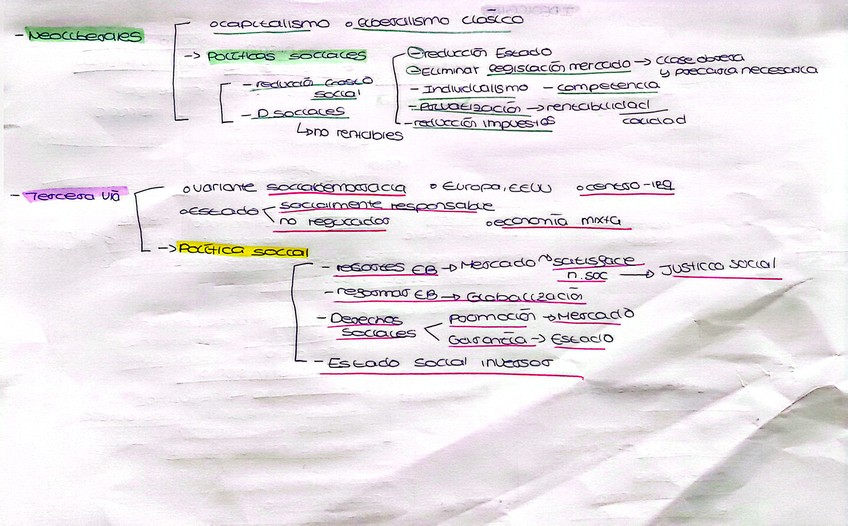 - Neoliberales
o capitalismo o liberalismo clásico
-> políticas sociales
- reducción gasto
social
- D. sociales
↳ no rentables
- reducción Estado
- Eliminar legislación mercado -> clase obrera
y precaria necesaria
- Individualismo - competencia
- Privatización -> rentabilidad
calidad
- reducción impuestos
- Tercera vía
o variante socialdemocracia o Europa, EEUU o centro-izq
o Estado < socialmente responsable
no regulador
o economía mixta
-> Política social
- resortes EB -> Mercado no satisface
n. soc -> Justicia social
- reformar EB -> Globalización
- Derechos
sociales < Promoción -> Mercado
Garantía -> Estado
- Estado social inversor